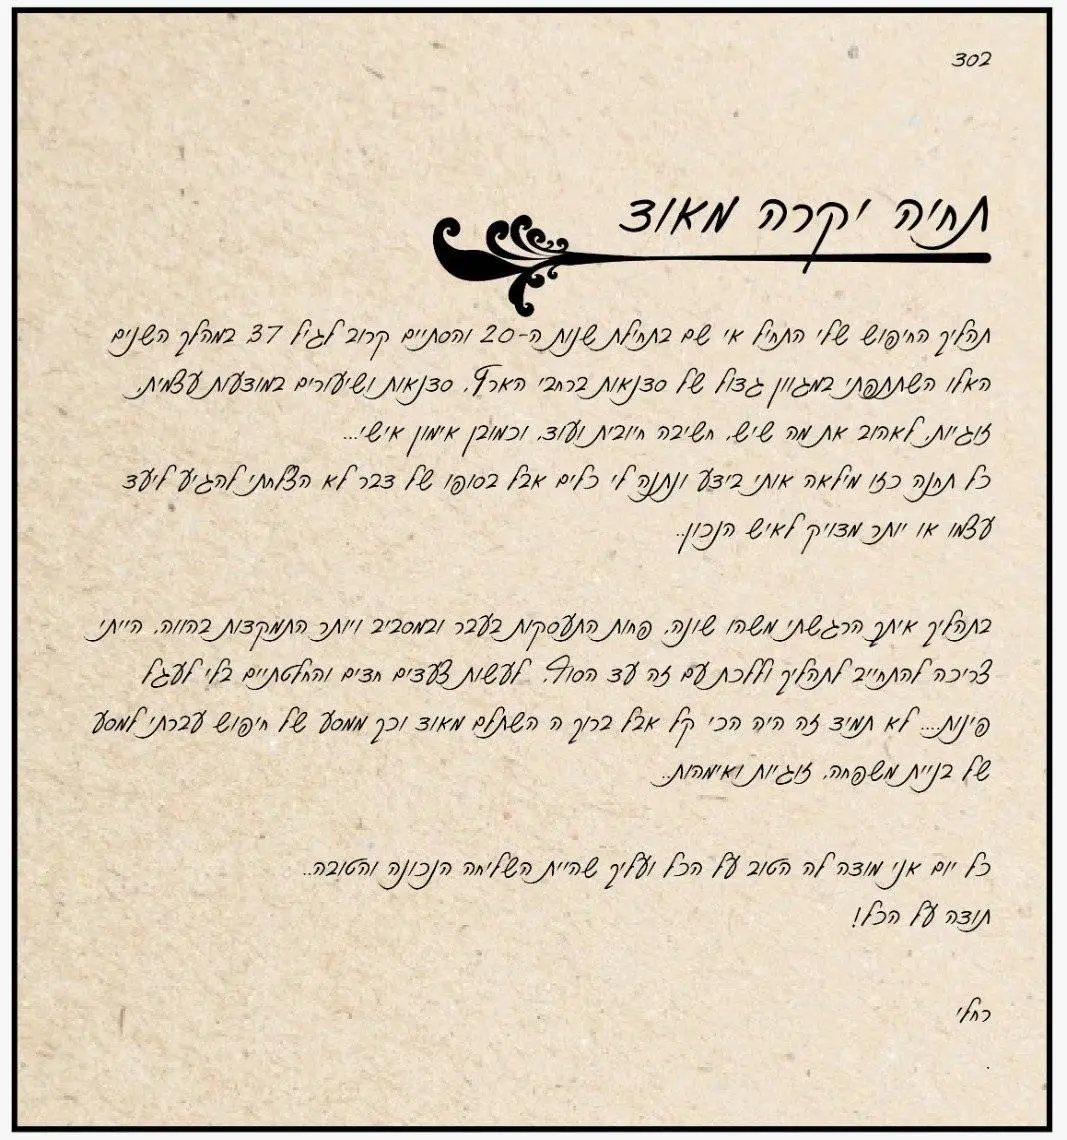 302
תחיה יקרה מאוד
תהליך החיפוש שלי התחיל אי שם בתחילת שנות ה-20 והסתיים קרוב לגיל 37. במהלך השנים
האלו השתתפתי במגוון גדול של סדנאות ברחבי הארץ. סדנאות ושיעורים במודעות עצמית,
זוגיות, לאהוב את מה שיש, חשיבה חיובית ועוד, וכמובן אימון אישי...
כל תחנה כזו מילאה אותי בידע ונתנה לי כלים אבל בסופו של דבר לא הצלחתי להגיע ליעד
עצמו או יותר מדויק לאיש הנכון..
בתהליך איתך הרגשתי משהו שונה, פחות התעסקות בעבר ובמסביב ויותר התמקדות בהווה. הייתי
צריכה להתחייב לתהליך וללכת עם זה עד הסוף. לעשות צעדים חדים והחלטתיים בלי לעגל
פינות.... לא תמיד זה היה הכי קל אבל ברוך ה השתלם מאוד וכך ממסע של חיפוש עברתי למסע
של בניית משפחה, זוגיות ואימהות..
כל יום אני מודה לה הטוב על הכל ועליך שהיית השליחה הנכונה והטובה..
תודה על הכל!
רחלי